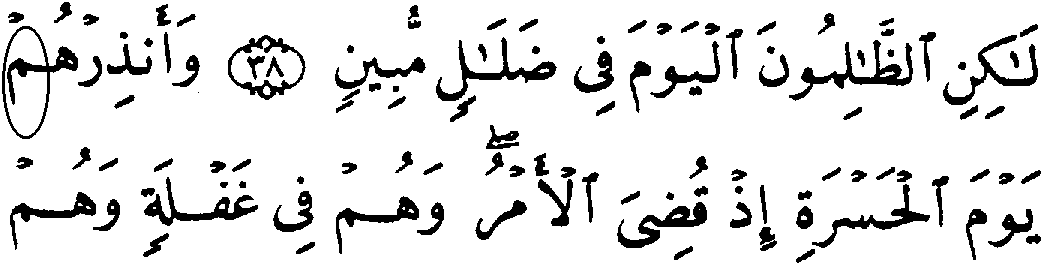 لَـٰكِنِ ٱلظَّـٰلِمُونَ ٱلْيَوْمَ فِى ضَلَـٰلٍ مُّبِينٍ ۝٣٨ وَأَنذِرْهُمْ
يَوْمَ ٱلْحَسْرَةِ إِذْ قُضِىَ ٱلْأَمْرُ ۖ وَهُمْ فِى غَفْلَةٍ وَهُمْ